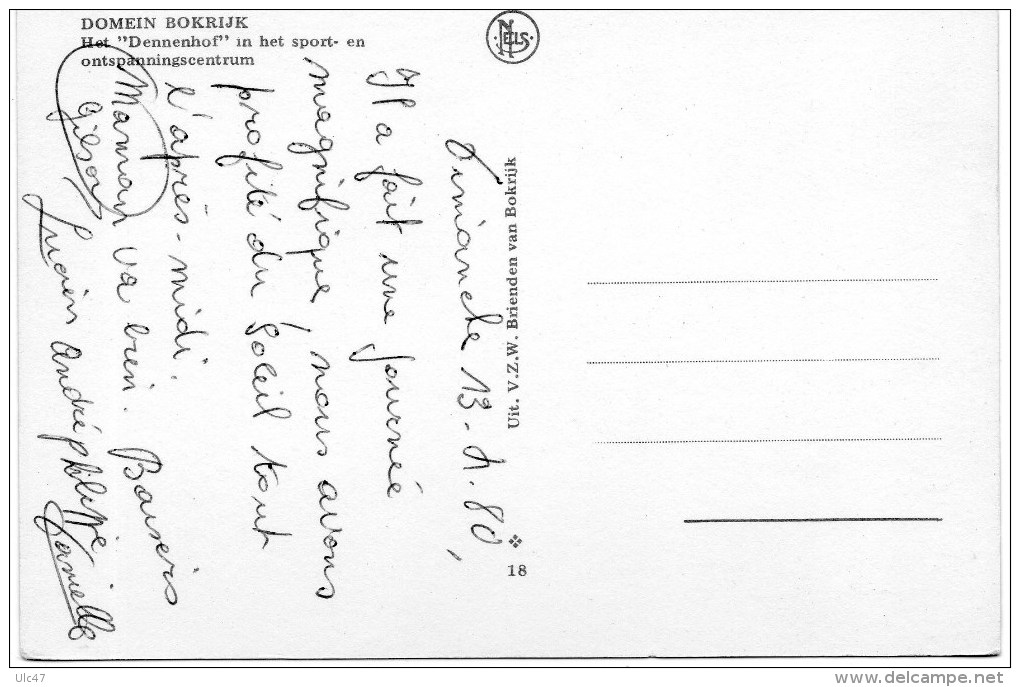 DOMEIN BOKRIJK
Het "Dennenhof" in het sport- en
ontspanningscentrum
NELS
Uit. V.Z.W. Brienden van Bokrijk
18
Dimanche 13-4.80,
Il a fait une journée
magnifique, nous avons
profité du Soleil tout
l'après-midi.
Maman va bien. Baisers
Gilson
Lucien André philippe
Danielle
Ulc47
www.delcampe.net